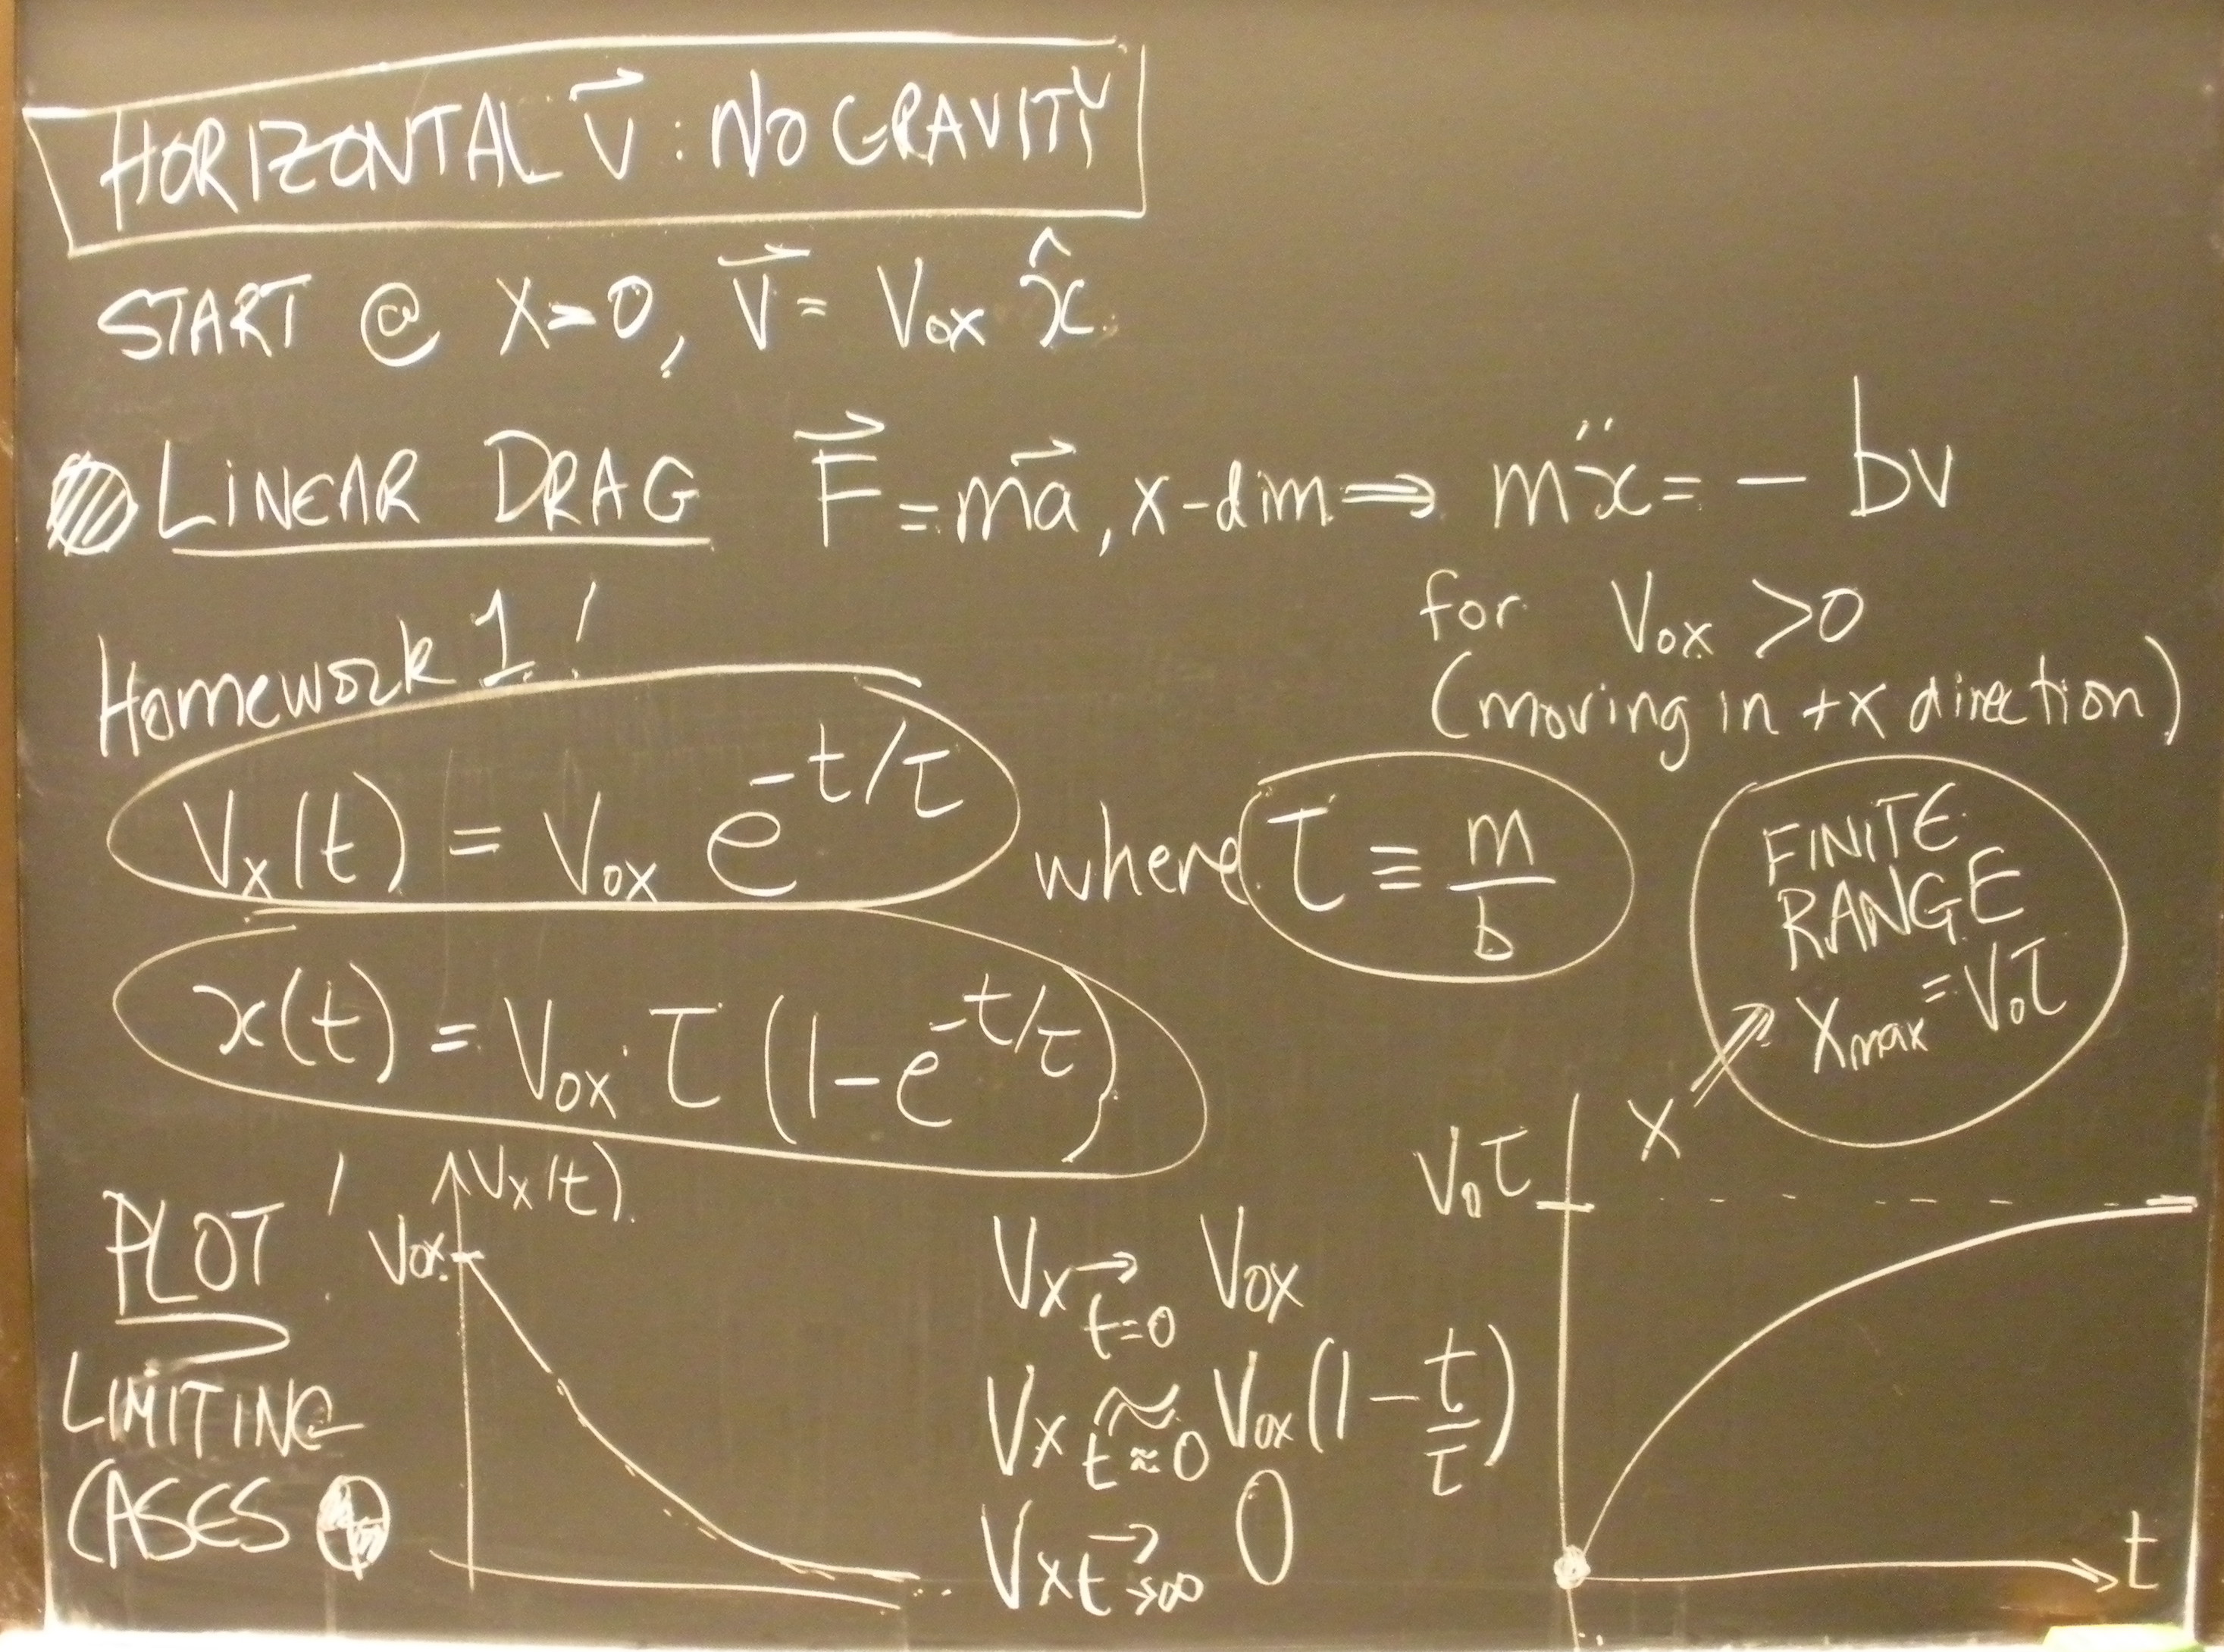 HORIZONTAL v⃗ : NO GRAVITY
START @ X=0, v⃗ = V₀ₓ x̂
LINEAR DRAG F⃗ = ma⃗, x-dim ⇒ mẍ = - bv
for V₀ₓ >0
(moving in +x direction)
Homework 1!
Vₓ(t) = V₀ₓ e^(-t/τ) where τ ≡ m/b
x(t) = V₀ₓ τ (1-e^(-t/τ))
FINITE
RANGE
Xmax = V₀τ
PLOT!
LIMITING
CASES
Vₓ(t)
V₀ₓ
Vₓ →_(t=0) V₀ₓ
Vₓ ≈_(t≈0) V₀ₓ(1 - t/τ)
Vₓ →_(t→∞) 0
X
V₀τ
t